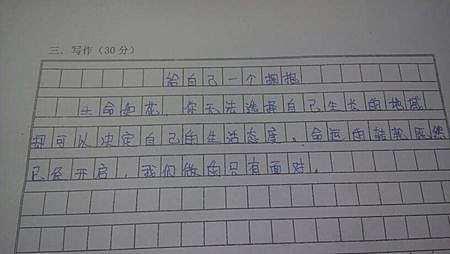 三、写作（30分）
给自己一个拥抱
生命如花，你无法选择自己生长的地域
却可以决定自己的生活态度、命运的转轮既然
已经开启，我们做的只有面对。